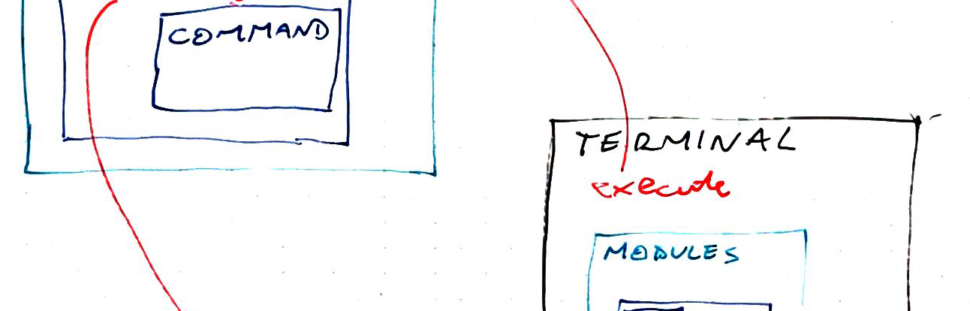 COMMAND
TERMINAL
execute
MODULES